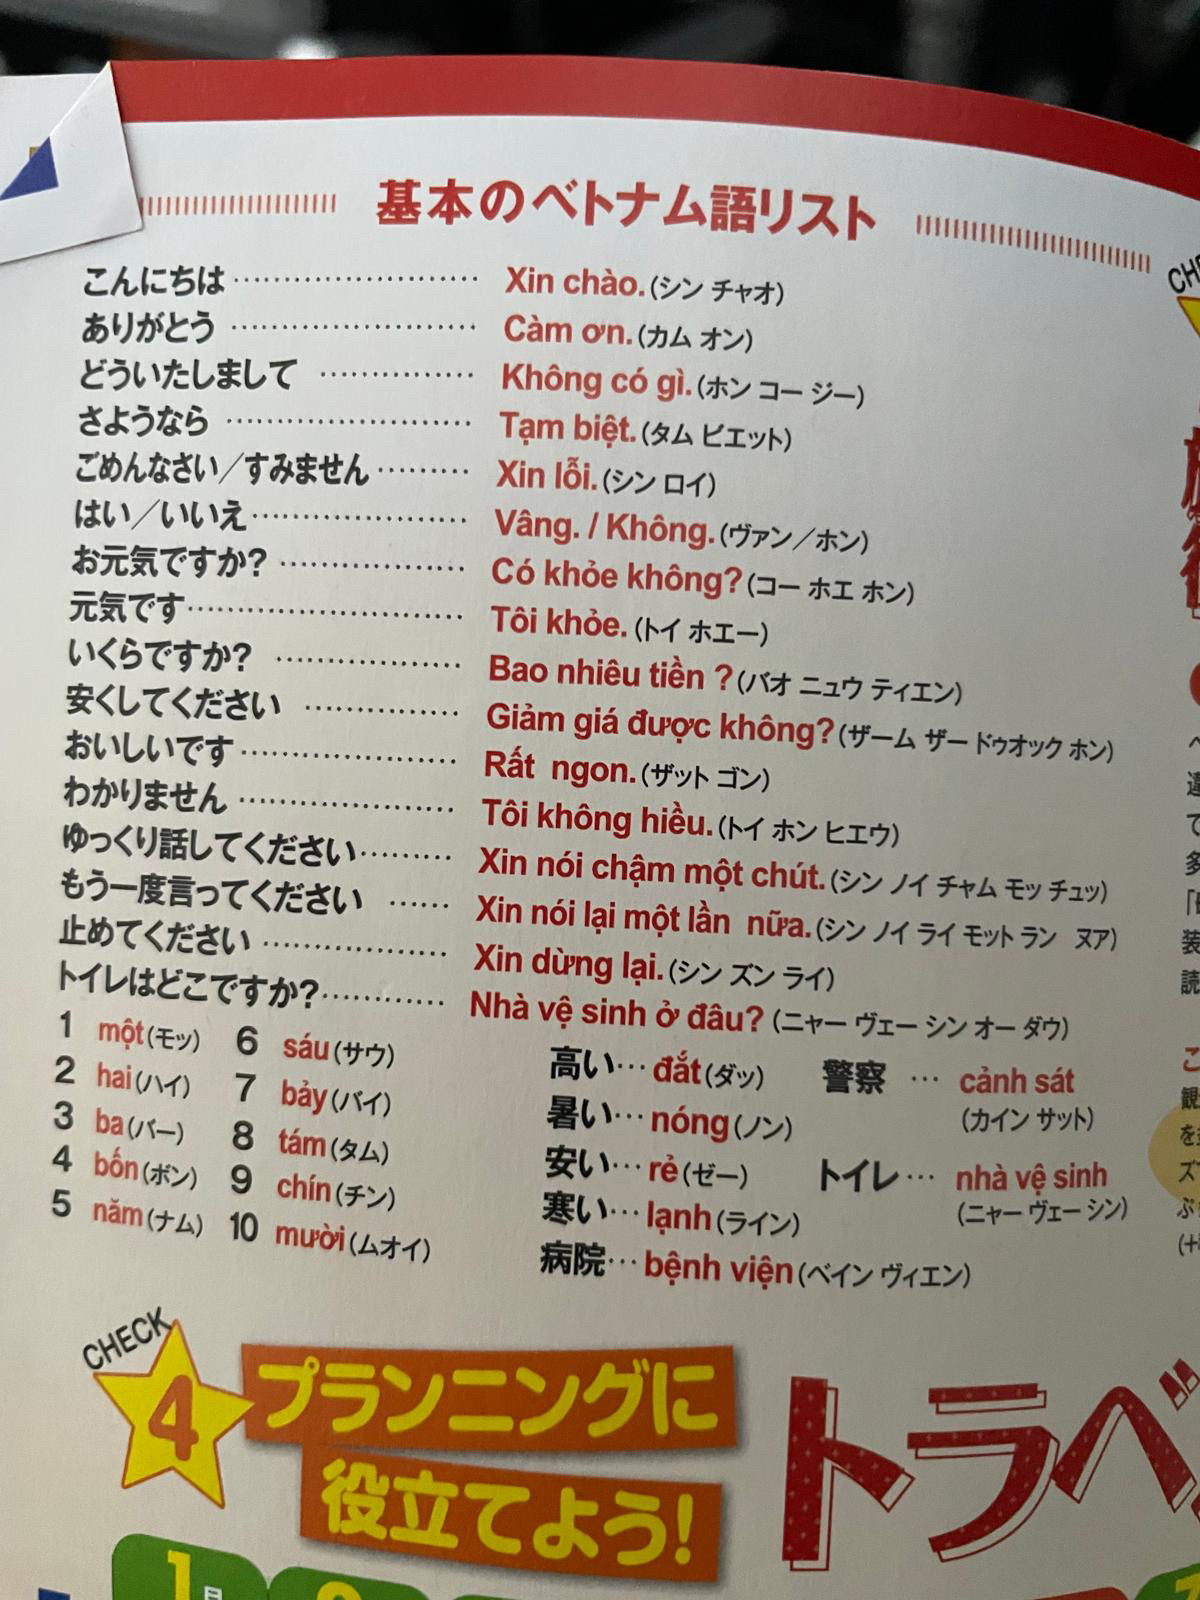 基本のベトナム語リスト
こんにちは Xin chào.(シン チャオ)
ありがとう Càm ơn.(カム オン)
どういたしまして Không có gì.(ホン コー ジー)
さようなら Tạm biệt.(タム ビエット)
ごめんなさい／すみません Xin lỗi.(シン ロイ)
はい／いいえ Vâng. / Không.(ヴァン／ホン)
お元気ですか? Có khỏe không?(コー ホエ ホン)
元気です Tôi khỏe.(トイ ホエー)
いくらですか? Bao nhiêu tiền ?(バオ ニュウ ティエン)
安くしてください Giảm giá được không?(ザーム ザー ドゥオック ホン)
おいしいです Rất ngon.(ザット ゴン)
わかりません Tôi không hiều.(トイ ホン ヒエウ)
ゆっくり話してください Xin nói chậm một chút.(シン ノイ チャム モッ チュッ)
もう一度言ってください Xin nói lại một lần nữa.(シン ノイ ライ モット ラン ヌア)
止めてください Xin dừng lại.(シン ズン ライ)
トイレはどこですか? Nhà vệ sinh ở đâu?(ニャー ヴェー シン オー ダウ)
1 một(モッ) 6 sáu(サウ)
2 hai(ハイ) 7 bảy(バイ)
3 ba(バー) 8 tám(タム)
4 bốn(ボン) 9 chín(チン)
5 năm(ナム) 10 mười(ムオイ)
高い… đắt(ダッ) 警察 … cảnh sát
(カイン サット)
暑い… nóng(ノン)
安い… rẻ(ゼー) トイレ… nhà vệ sinh
(ニャー ヴェー シン)
寒い… lạnh(ライン)
病院… bệnh viện(ベイン ヴィエン)
CHECK
4
プランニングに
役立てよう!
トラベ
1月